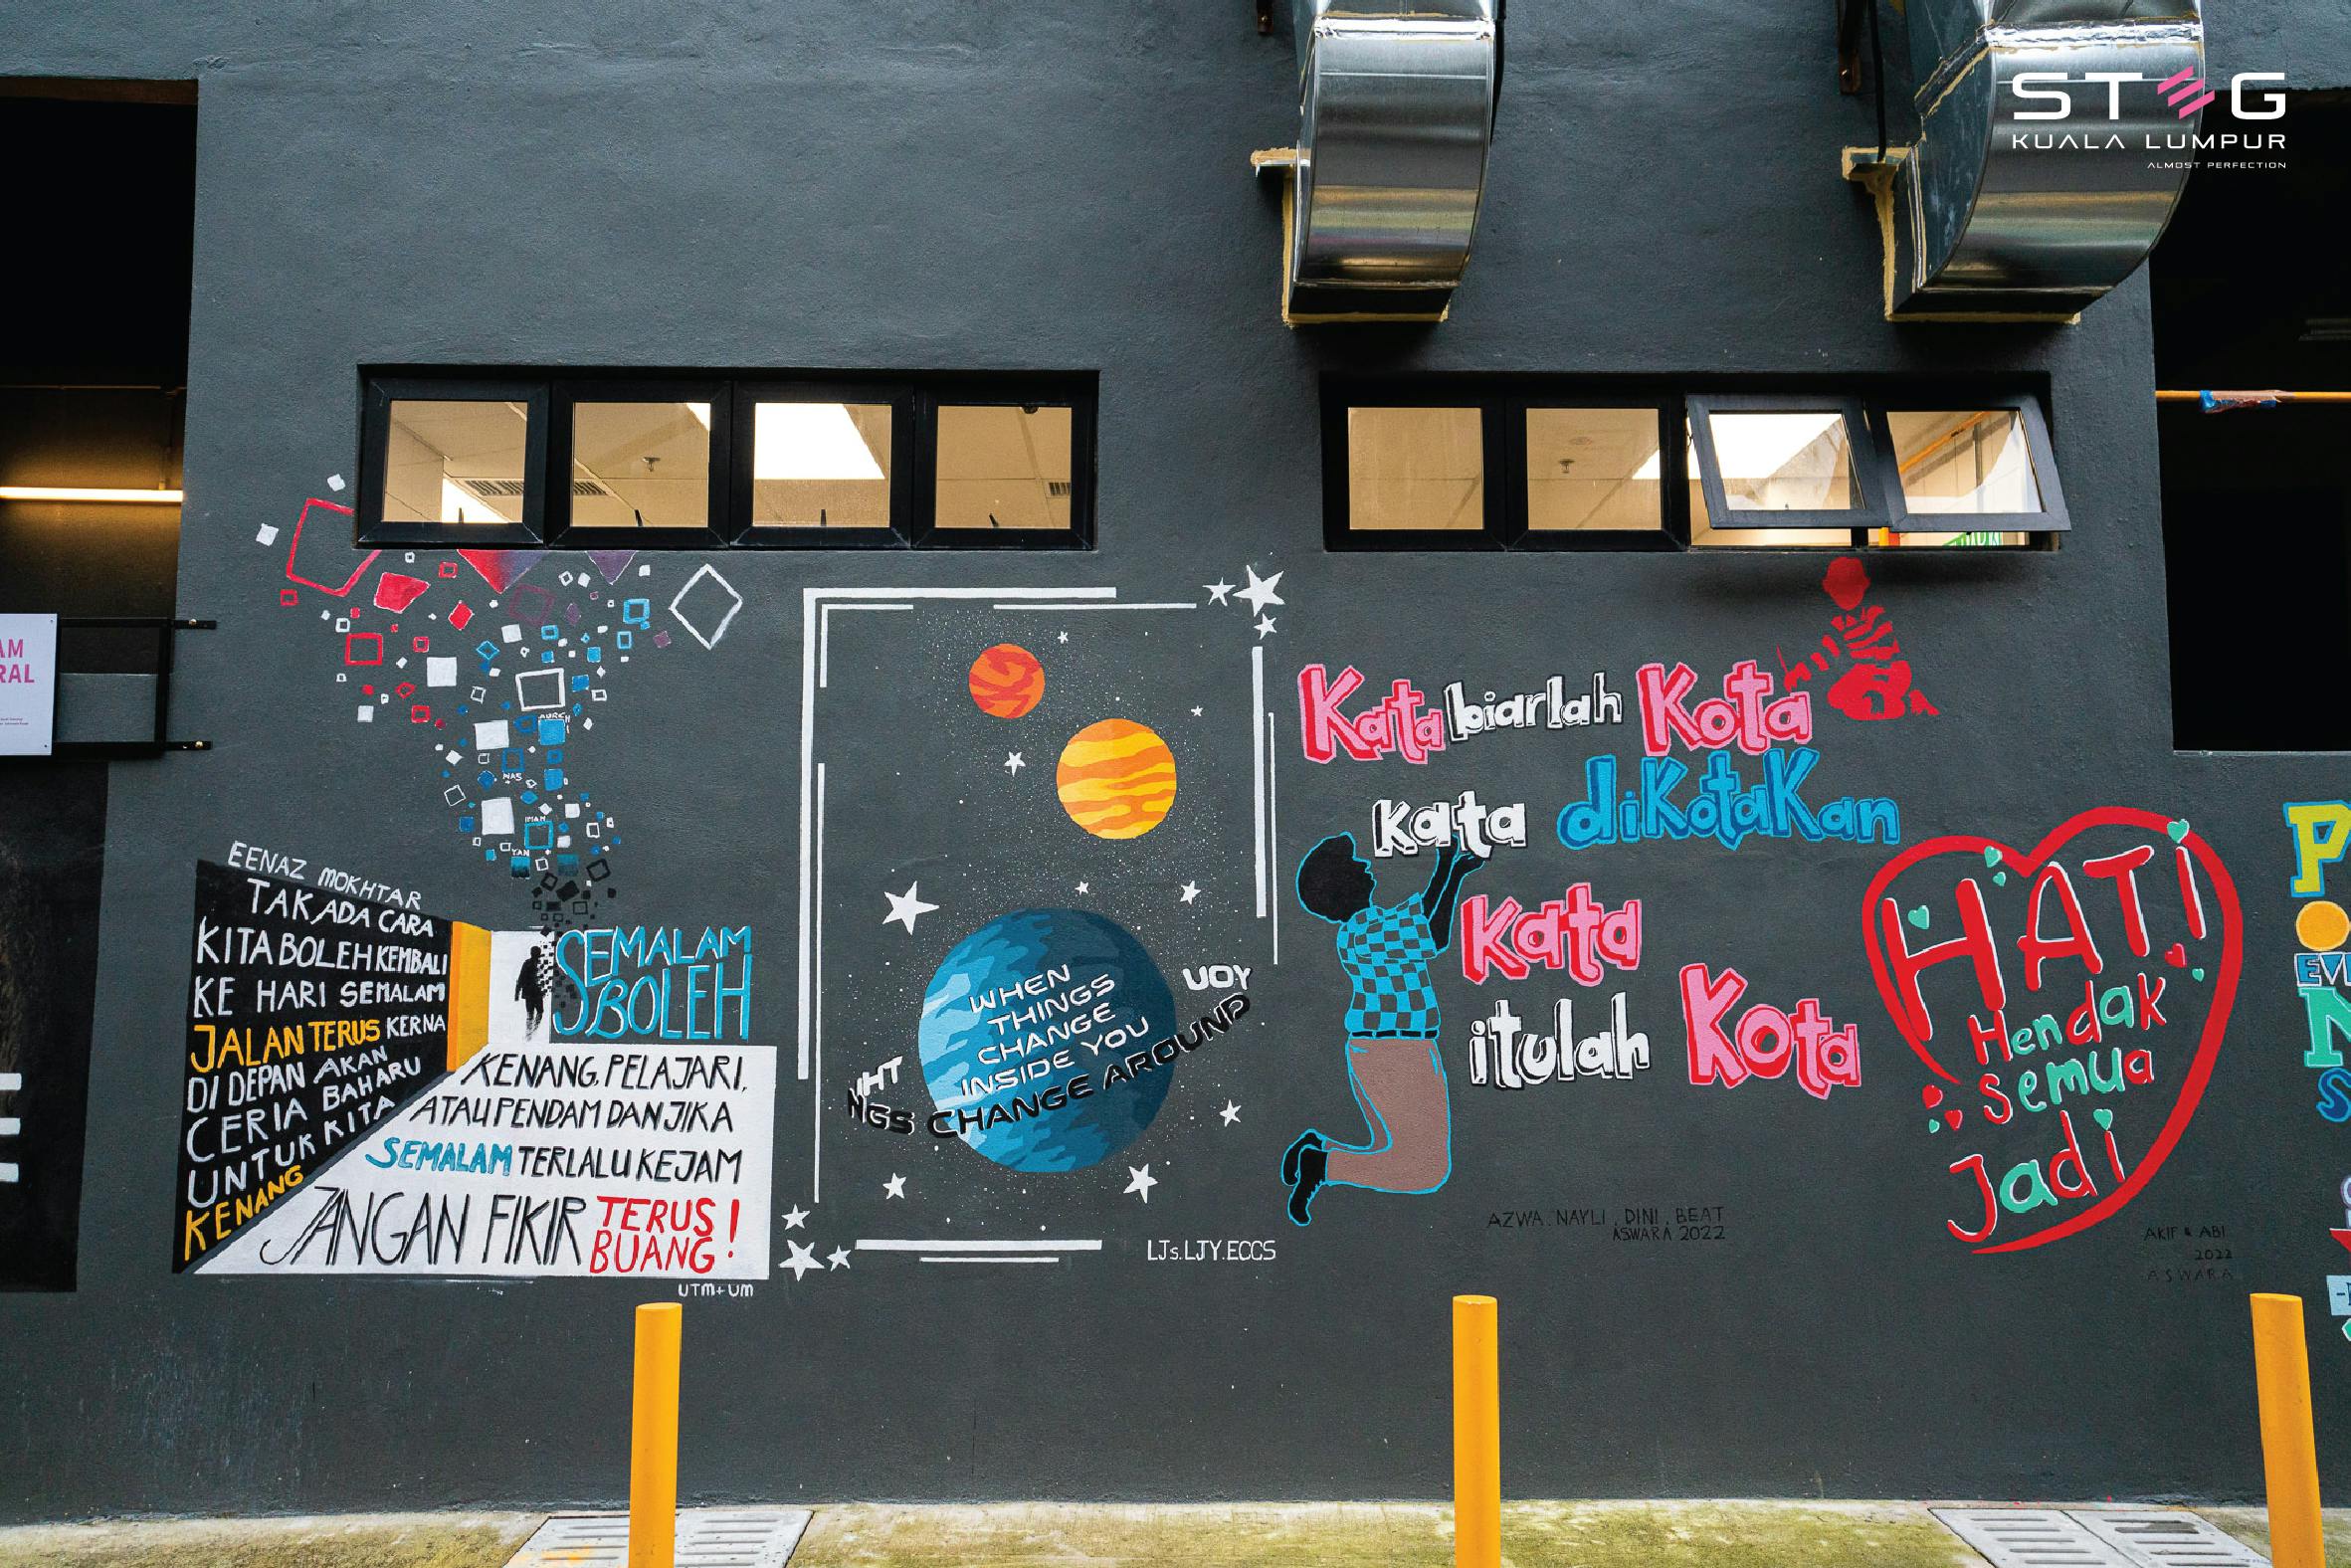 STEG
KUALA LUMPUR
ALMOST PERFECTION
AM
RAL
EENAZ MOKHTAR
TAK ADA CARA
KITA BOLEH KEMBALI
KE HARI SEMALAM
JALAN TERUS KERNA
DI DEPAN AKAN
CERIA BAHARU
UNTUK KITA
KENANG
SEMALAM
BOLEH
KENANG, PELAJARI,
ATAU PENDAM DAN JIKA
SEMALAM TERLALU KEJAM
JANGAN FIKIR TERUS
BUANG!
UTM+UM
WHEN
THINGS
CHANGE
INSIDE YOU
IHT
NGS CHANGE AROUND
UOY
LJs.LJY.ECCS
Kata biarlah Kota
kata diKotaKan
Kata
itulah Kota
AZWA.NAYLI.DINI.BEAT
ASWARA 2022
HATI
Hendak
Semua
Jadi
AKIF & ABI
2022
ASWARA